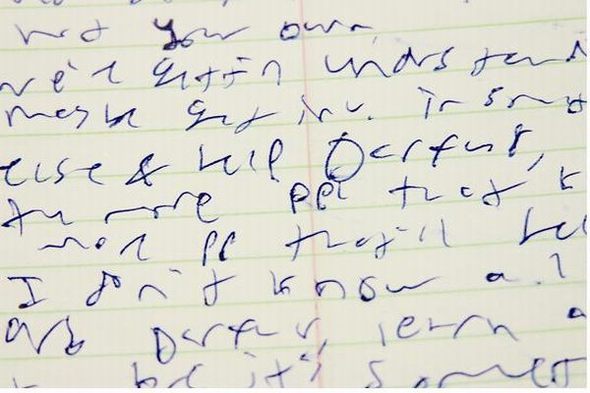 not your own
understand
maybe get inv. in som
else & help Darfur,
the more ppl that k
more pp that'll hel
I don't know al
Darfur, learn a
be it's somet